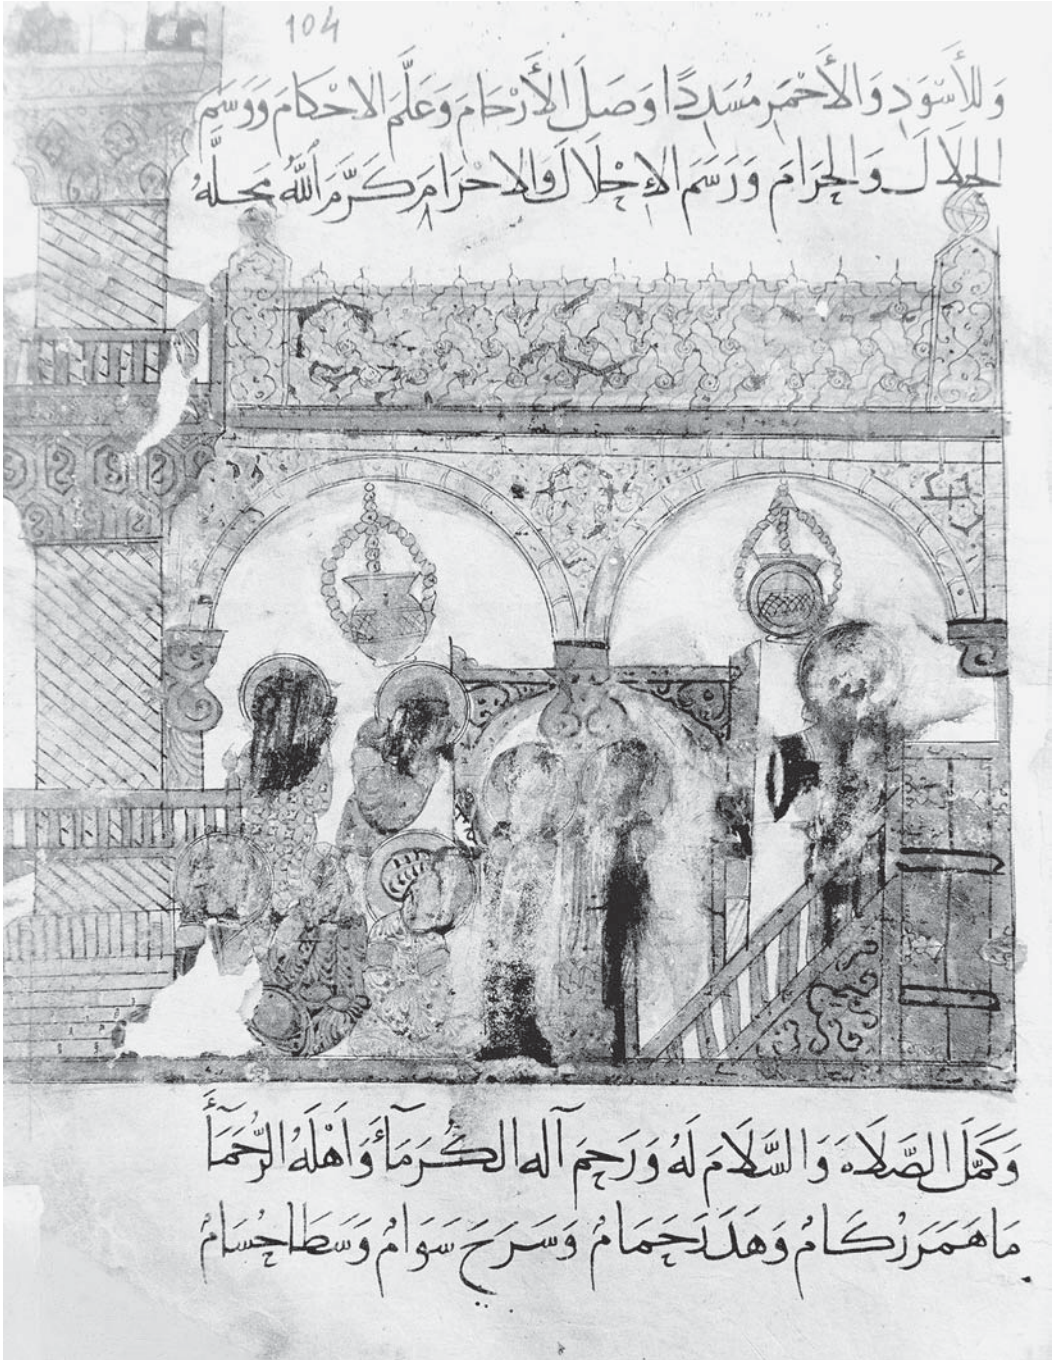 104
وَلِلأَسْوَدِ وَالأَحْمَرِ مُسَدِّدًا وَصَلَ الأَرْحَامَ وَعَلَّمَ الاحْكَامَ وَوَسَمَ
الحَلَالَ وَالحَرَامَ وَرَسَمَ الاِحْلَالَ وَالاحْرَامَ كَرَّمَ اللَّهُ مَحَلَّهُ
وَكَمَّلَ الصَّلَاةَ وَالسَّلَامَ لَهُ وَرَحِمَ آلَهُ الكُرَمَآءَ وَأَهْلَهُ الرُّحَمَآءَ
مَا هَمَرَ رُكَامٌ وَهَدَرَ حَمَامٌ وَسَرَحَ سَوَامٌ وَسَطَا حُسَامٌ